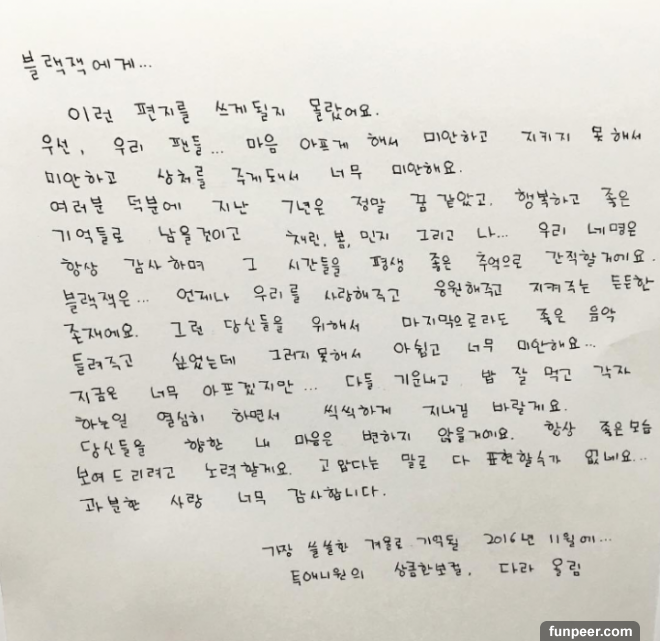 블랙잭에게...
이런 편지를 쓰게될지 몰랐어요.
우선, 우리 팬들... 마음 아프게 해서 미안하고 지키지 못해서
미안하고 상처를 주게돼서 너무 미안해요.
여러분 덕분에 지난 7년은 정말 꿈 같았고. 행복하고 좋은
기억들로 남을것이고 채린, 봄, 민지 그리고 나... 우리 네명은
항상 감사하며 그 시간들을 평생 좋은 추억으로 간직할거에요.
블랙잭은... 언제나 우리를 사랑해주고 응원해주고 지켜주는 든든한
존재에요. 그런 당신들을 위해서 마지막으로라도 좋은 음악
들려주고 싶었는데 그러지못해서 아쉽고 너무 미안해요...
지금은 너무 아프겠지만... 다들 기운내고 밥 잘 먹고 각자
하는일 열심히 하면서 씩씩하게 지내길 바랄게요.
당신들을 향한 내 마음은 변하지 않을거에요. 항상 좋은모습
보여드리려고 노력할게요. 고맙다는 말로 다 표현할수가 없네요...
과분한 사랑 너무 감사합니다.
가장 쓸쓸한 겨울로 기억될 2016년 11월에...
투애니원의 상큼한보컬, 다라 올림
funpeer.com